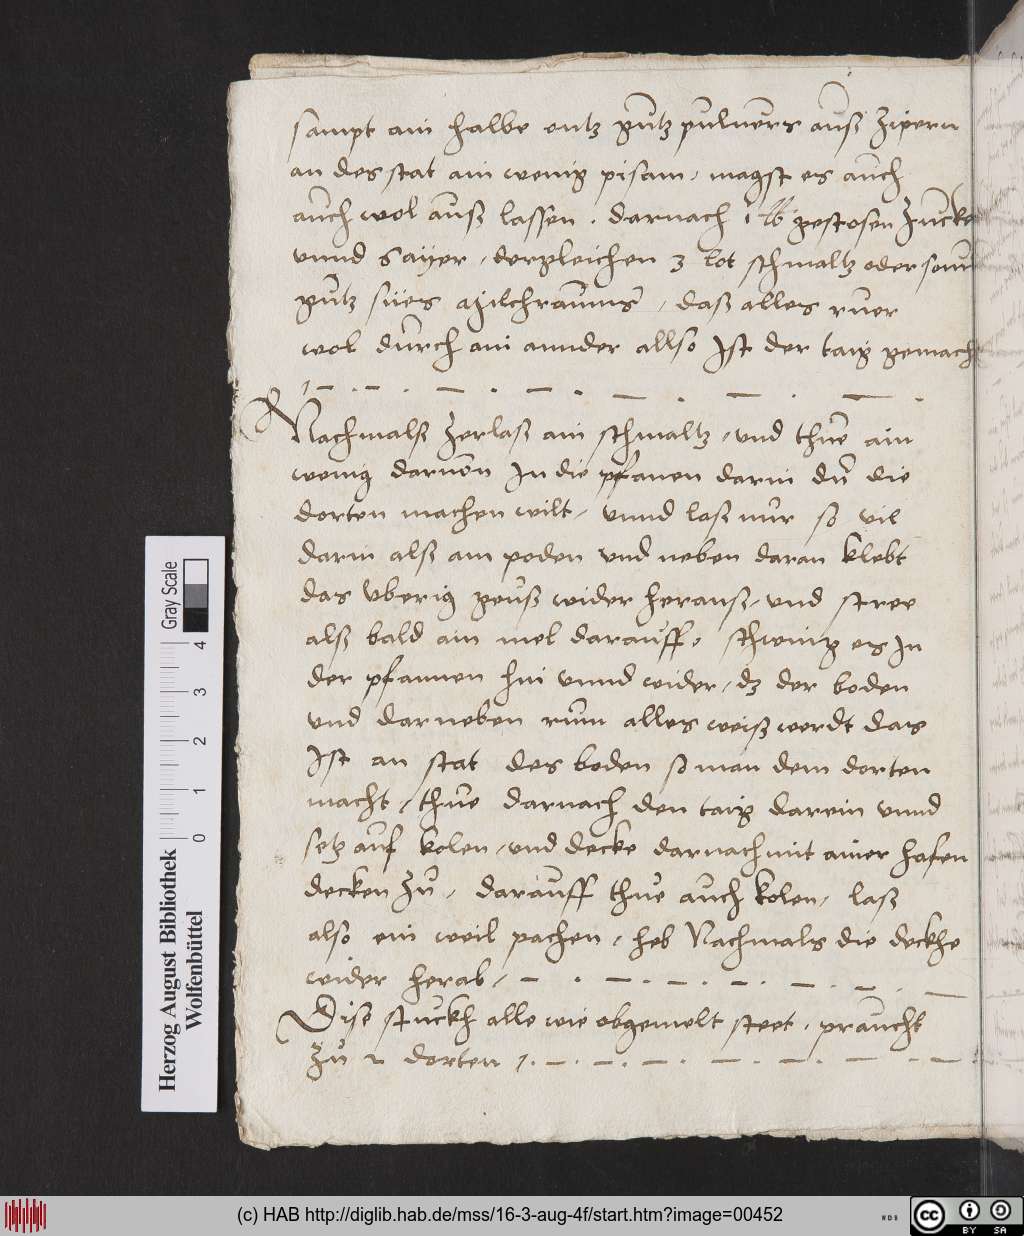 sampt ain halbe entz gůtz pulvers auß Zipern
an des stat ain wenig pisam, magst es auch
auch wol auß lassen. darnach 1 lb gestosen Zucker
vnnd 5 ayer, dergleichen 3 lot schmaltz oder souil
gůtz sües milchraums, daß alles rüer
wol durch ain annder allso Ist der taig gemacht
Nachmalß Zerlaß ain schmaltz, vnd thue ain
wenig darvon In die pfanen darin du die
dorten machen wilt, vnnd laß nur so vil
darin alß am poden vnd neben daran klebt
das vberig geuß wider herauß, vnd stree
alß bald ain mel darauff, schwing es In
der pfannen hin vnnd wider, dz der boden
vnd darneben rum alles weiß werdt das
Ist an stat des boden so man dem dorten
macht, thue darnach den taig darein vnnd
setz auf kolen, vnd decke darnach mit ainer hafen
decken Zů, darauff thue auch kolen, laß
also ein weil pachen, heb Nachmals die deckhe
wider herab,
Dise stuckh alle wie obgemelt steet, praucht
Zů 2 dorten
Gray Scale
0 1 2 3 4
Herzog August Bibliothek
Wolfenbüttel
(c) HAB http://diglib.hab.de/mss/16-3-aug-4f/start.htm?image=00452
WDB
cc BY SA